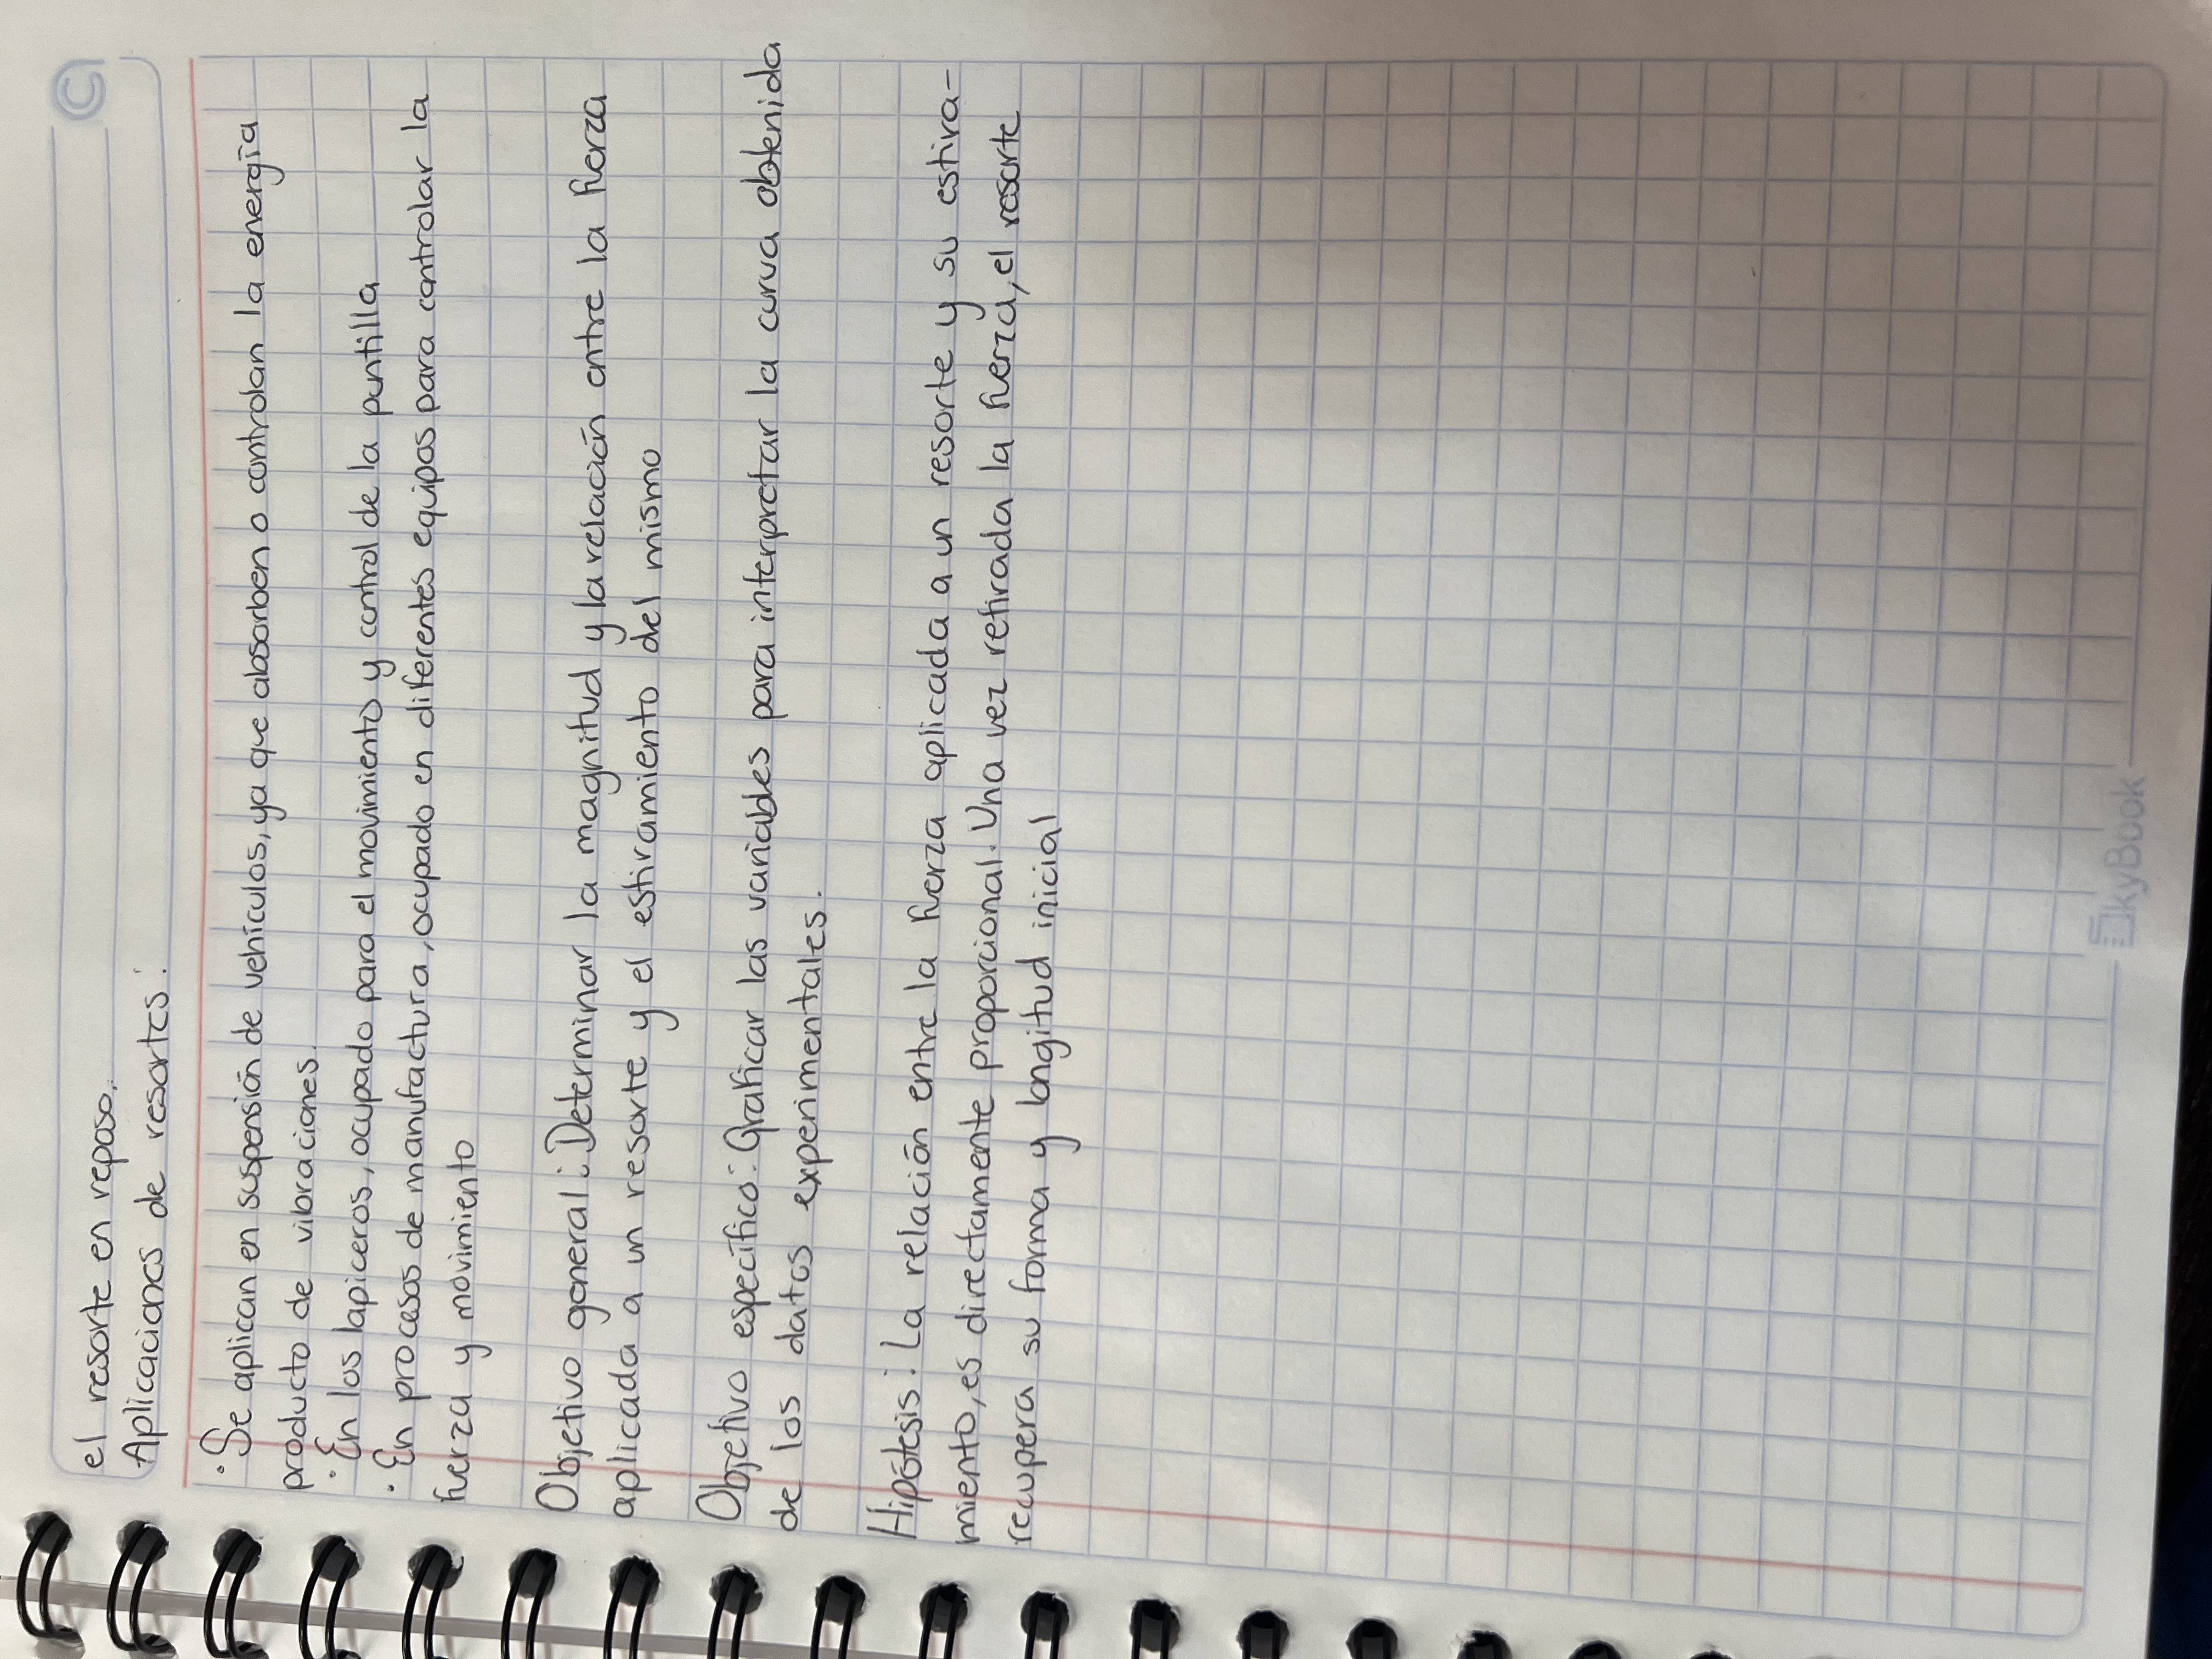 el resorte en reposo.
Aplicaciones de resortes:
· Se aplican en suspensión de vehículos, ya que absorben o controlan la energía
producto de vibraciones.
· En los lapiceros, ocupado para el movimiento y control de la puntilla
· En procesos de manufactura, ocupado en diferentes equipos para controlar la
fuerza y movimiento
Objetivo general: Determinar la magnitud y la relación entre la fuerza
aplicada a un resorte y el estiramiento del mismo
Objetivo específico: Graficar las variables para interpretar la curva obtenida
de los datos experimentales.
Hipótesis: La relación entre la fuerza aplicada a un resorte y su estira-
miento, es directamente proporcional. Una vez retirada la fuerza, el resorte
recupera su forma y longitud inicial
SkyBook